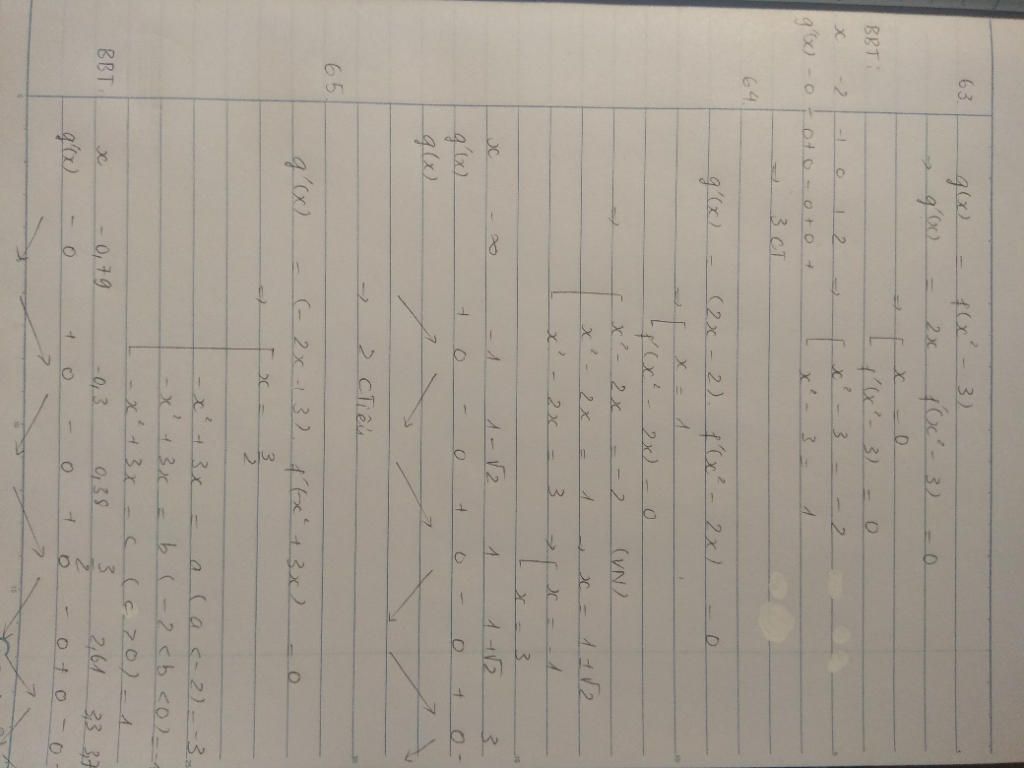 63. g(x) = f(x² - 3)
→ g'(x) = 2x f'(x² - 3) = 0
→ [ x = 0
f'(x² - 3) = 0
BBT:
x -2 -1 0 1 2 → [ x² - 3 = -2
g'(x) - 0 - 0 + 0 - 0 + 0 + x² - 3 = 1
→ 3 CT
64. g'(x) = (2x - 2). f'(x² - 2x) = 0
→ [ x = 1
f'(x² - 2x) = 0
→ [ x² - 2x = -2 (VN)
x² - 2x = 1 → x = 1 ± √2
x² - 2x = 3 → [ x = -1
x = 3
x -∞ -1 1-√2 1 1+√2 3
g'(x) + 0 - 0 + 0 - 0 + 0 -
g(x)
→ 2 CTiểu
65. g'(x) = (-2x + 3). f'(-x² + 3x) = 0
→ [ x = 3/2
-x² + 3x = a (a < -2) = -3
-x² + 3x = b (-2 < b < 0) = -1
-x² + 3x = c (c > 0) = 1
BBT:
x -0,79 -0,3 0,38 3/2 2,61 3,3 3,7
g'(x) - 0 + 0 - 0 + 0 - 0 + 0 - 0